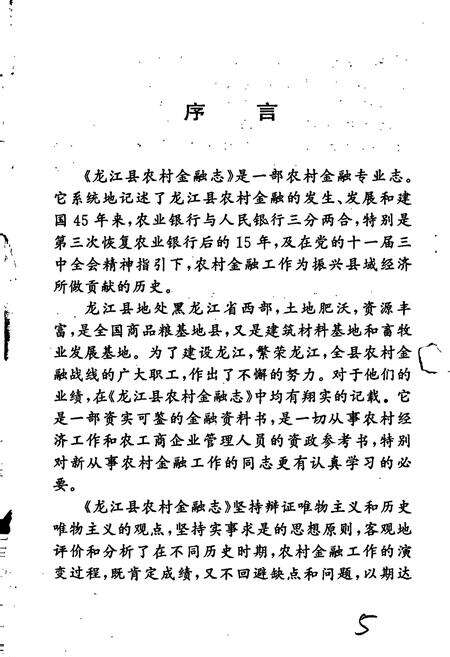 序 言
《龙江县农村金融志》是一部农村金融专业志。
它系统地记述了龙江县农村金融的发生、发展和建
国45年来,农业银行与人民银行三分两合,特别是
第三次恢复农业银行后的15年,及在党的十一届三
中全会精神指引下,农村金融工作为振兴县域经济
所做贡献的历史。
龙江县地处黑龙江省西部,土地肥沃,资源丰
富,是全国商品粮基地县,又是建筑材料基地和畜牧
业发展基地。为了建设龙江,繁荣龙江,全县农村金
融战线的广大职工,作出了不懈的努力。对于他们的
业绩,在《龙江县农村金融志》中均有翔实的记载。它
是一部资实可鉴的金融资料书,是一切从事农村经
济工作和农工商企业管理人员的资政参考书,特别
对新从事农村金融工作的同志更有认真学习的必
要。
《龙江县农村金融志》坚持辩证唯物主义和历史
唯物主义的观点,坚持实事求是的思想原则,客观地
评价和分析了在不同历史时期,农村金融工作的演
变过程,既肯定成绩,又不回避缺点和问题,以期达
5